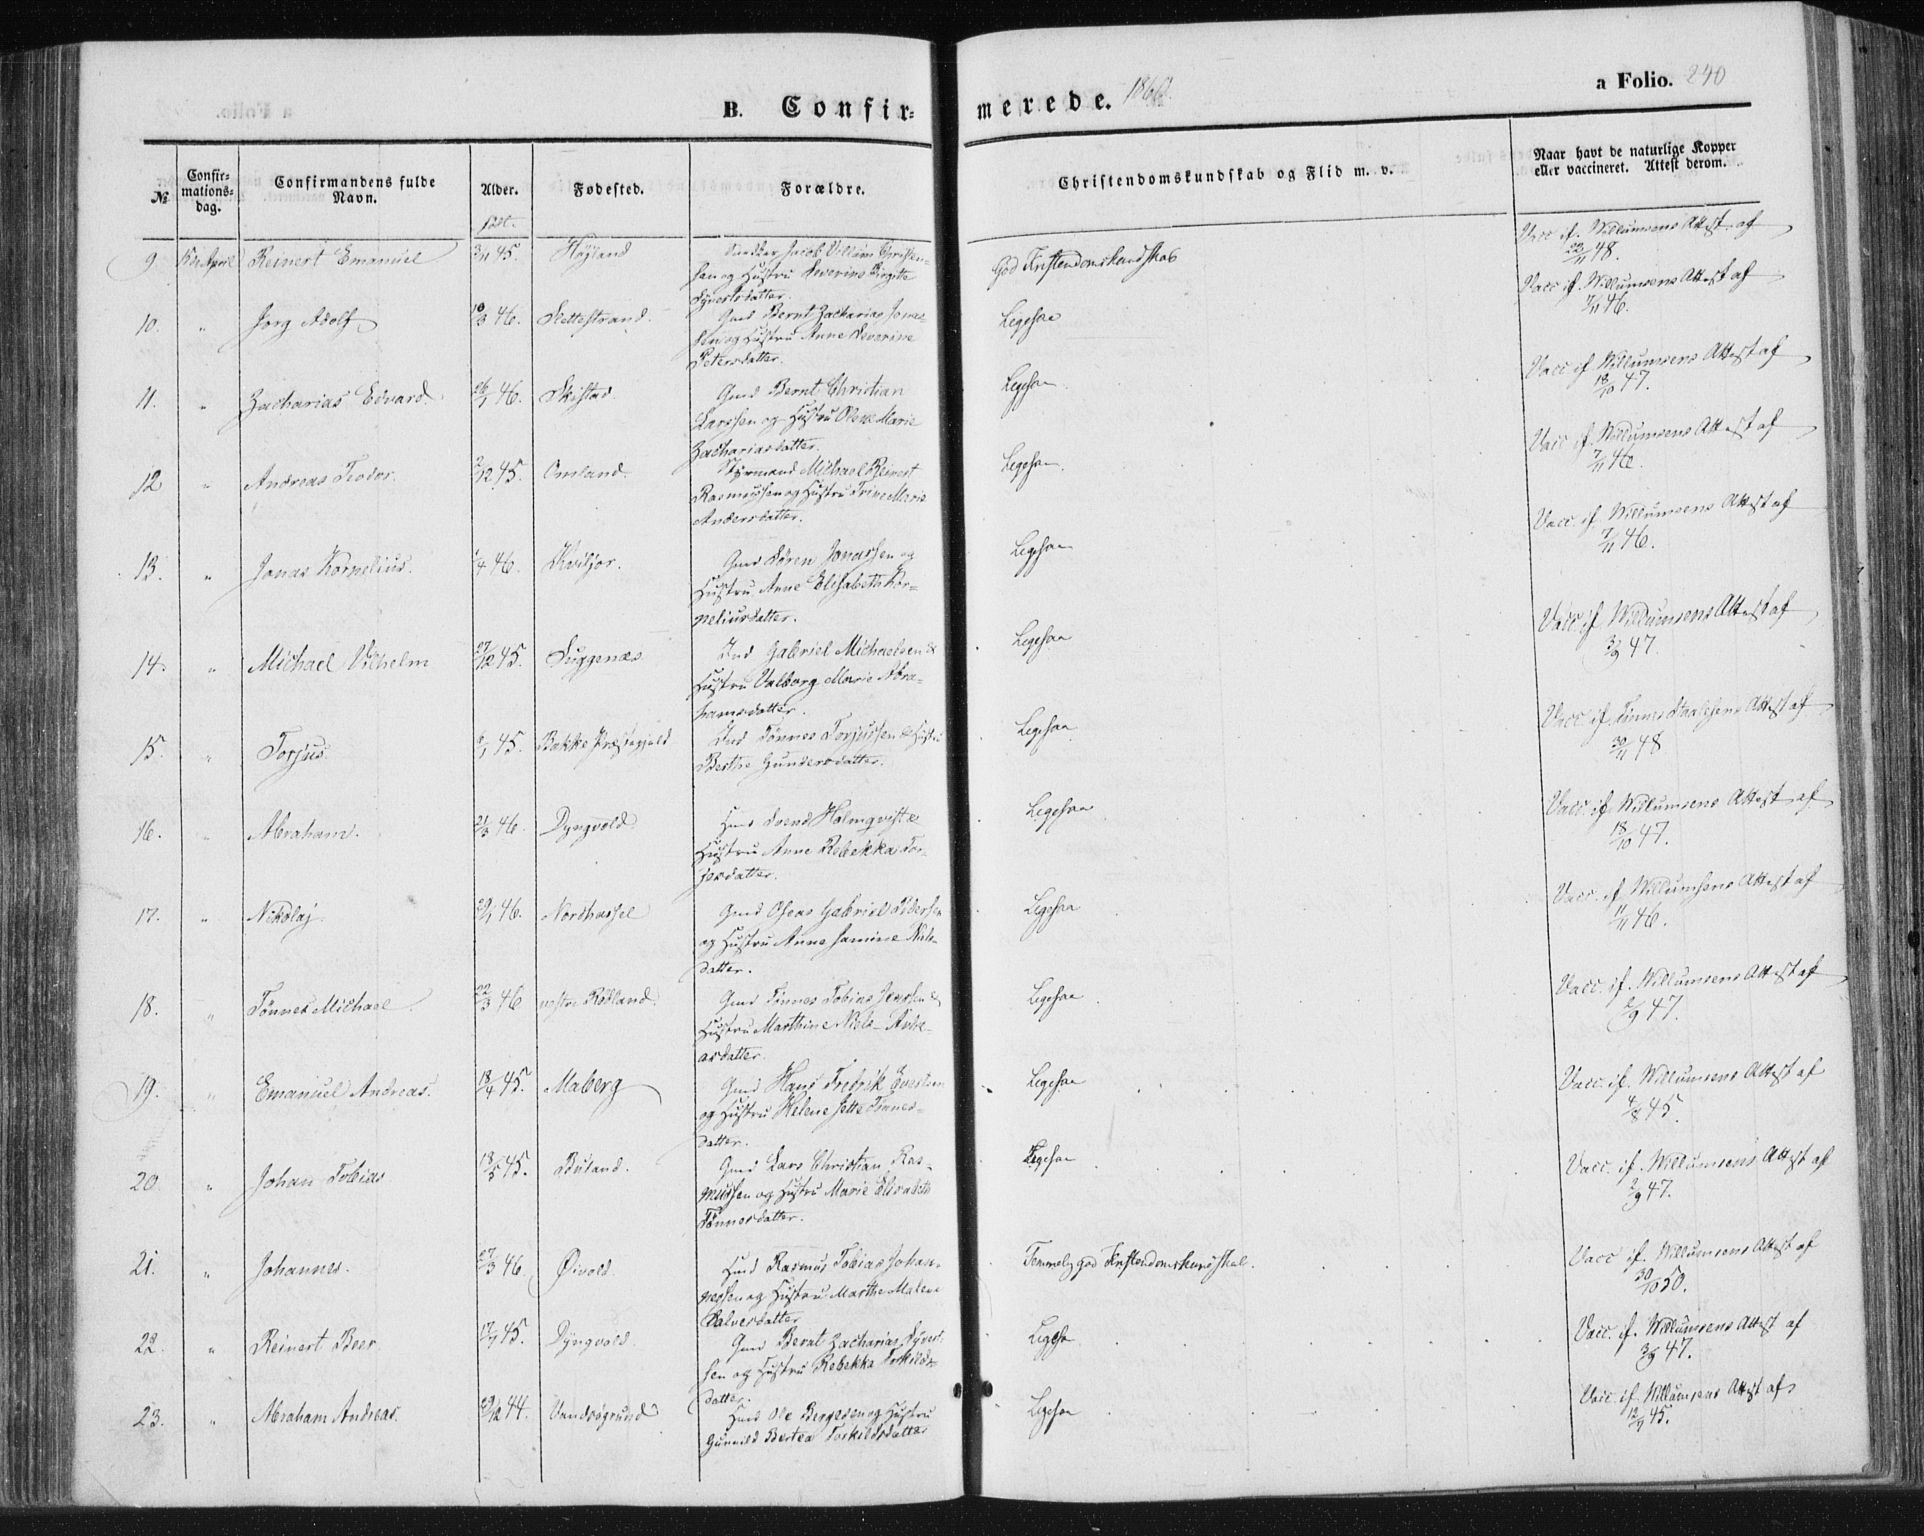 B. Confir-
merede. 186
a Folio. 240
№
Confir-
mations-
dag.
Confirmandens fulde
Navn.
Alder.
Fødested.
Forældre.
Christendomskundskab og Flid m. v.
Naar havt de naturlige Kopper
eller vaccineret. Attest derom.
født.
9 April Reinert Emanuel 3/11 45. Høyland
Jacob Villum Christen-
sen og Hustru Severine Birgitte
Syvertsdatter.
God Kristendomskundskab
Vacc. if. Willumsens Attest af
23/11 48.
10. " Jørg Adolf 10/3 46. Slettestrand.
Gmd Bernt Zacharias Jonas-
sen og Hustru Anne Severine
Petersdatter.
Ligesaa
Vacc if. Willumsens Attest af
7/11 46.
11. " Zacharias Edvard. 26/1 46. Skistad
Gmd Bernt Christian
Larssen og Hustru Olene Marie
Zachariasdatter.
Ligesaa
Vacc if Willumsens Attest af
18/10 47.
12 " Andreas Teodor. 2/12 45. Omland.
Styrmand Michael Reinert
Rasmussen og Hustru Trine Marie
Andersdatter.
Ligesaa.
Vacc if. Willumsens Attest af
7/11 46.
13. " Jonas Kornelius. 1/4 46. Kviljor.
Gmd Søren Jonassen og
Hustru Anne Elisabeth Kor-
neliusdatter.
Ligesaa
Vacc. if. Willumsens Attest af
7/11 46.
14. " Michael Vilhelm 27/12 45. Suggenæs
Ind Gabriel Michaelsen &
Hustru Valborg Marie Abra-
hamsdatter.
Ligesaa
Vacc if Willumsens Attest af
3/9 47.
15. " Torjus. 6/1 45. Bakke Præstegjeld
Ind Tønnes Torjussen & Hustru
Berthe Gundersdatter.
Ligesaa
Vacc. if. Attest af
30/11 48
16. " Abraham. 21/3 46. Dyngvold
Hmd Svend Holmqvist &
Hustru Anne Rebekka Tor-
jersdatter.
Ligesaa
Vacc. if. Willumsens Attest af
18/10 47.
17. " Nikolaj. 29/1 46. Nordhassel
Gmd Oseas Gabriel Pedersen
og Hustru Anne Samine Niels-
datter.
Ligesaa
Vacc. if Willumsens Attest af
11/11 46.
18. " Tønnes Michael. 22/3 46 vestre Rødland.
Gmd Tønnes Tobias Jenssen &
Hustru Marthine Niels-Andre-
asdatter.
Ligesaa
Vacc. if. Willumsens Attest af
2/9 47.
19. " Emanuel Andreas. 18/4 45. Maberg
Gmd Hans Fredrik Evertsen
og Hustru Helene Jette Tønnes-
datter.
Ligesaa
Vacc. if. Willumsens Attest af
4/8 45.
20. " Johan Tobias 18/5 45. Buland.
Gmd Lars Christian Ras-
mussen og Hustru Marie Elisabeth
Tønnesdatter.
Ligesaa
Vacc. if. Willumsens Attest af
2/9 47.
21. " Johannes. 27/3 46 Øivold.
Hmd Rasmus Tobias Johan-
nessen og Hustru Marthe Malene
Salvesdatter
Temmelig god Kristendomskundskab.
Vacc if. Willumsens Attest af
30/10 50.
22. " Reinert Beer. 17/7 45. Dyngvold.
Gmd Bernt Zacharias Syvert-
sen og Hustru Rebekka Torkilds-
datter.
Ligesaa
Vacc. if. Willumsens Attest af
3/9 47.
23. " Abraham Andreas. 29/12 44. Vandsøgrund
Hmd Ole Bergesen og Hustru
Gunnild Bertea Torkildsdatter
Ligesaa
Vacc. if Willumsens Attest af
12/9 45.